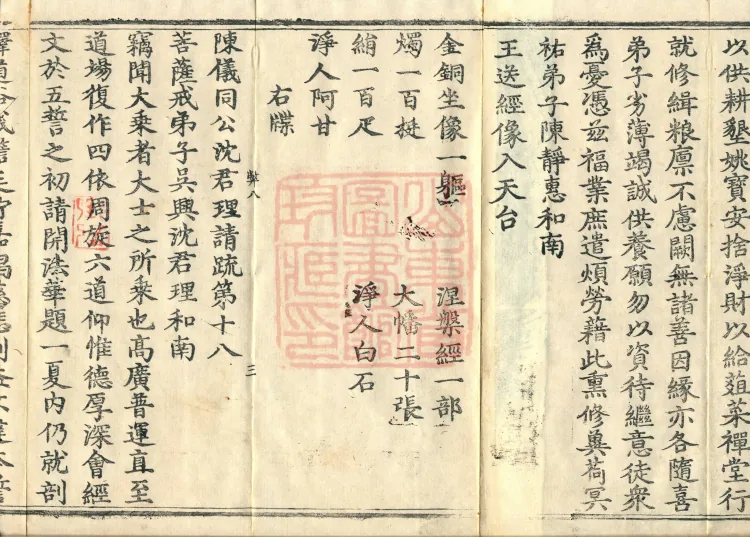 以供耕墾姚寶安捨淨財以給葅菜禪堂行
就修緝粮廪不慮闕無諸善因緣亦各隨喜
弟子劣薄竭誠供養願勿以資待繼意徒衆
爲憂憑兹福業庶遣煩勞藉此熏修兾荷冥
祐弟子陳靜惠和南
王送經像入天台
金銅坐像一軀 涅槃經一部
燭一百挺 大幡二十張
絹一百疋 淨人白石
淨人阿甘
右牒
弊八 三
陳儀同公沈君理請疏第十八
菩薩戒弟子吳興沈君理和南
竊聞大乘者大士之所乘也高廣普運直至
道場復作四依周旋六道仰惟德厚深會經
文於五誓之初請開法華題一夏內仍就剖